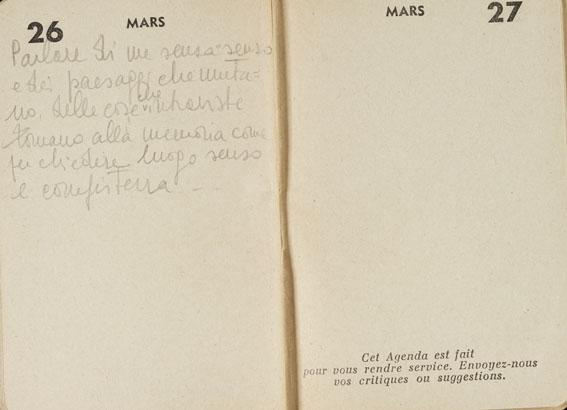 26 MARS
Parlare di me senza senso
e dei paesaggi che muta=
no, delle cose che
tornano alla memoria come
per chiedere luogo senso
e
MARS 27
Cet Agenda est fait
pour vous rendre service. Envoyez-nous
vos critiques ou suggestions.